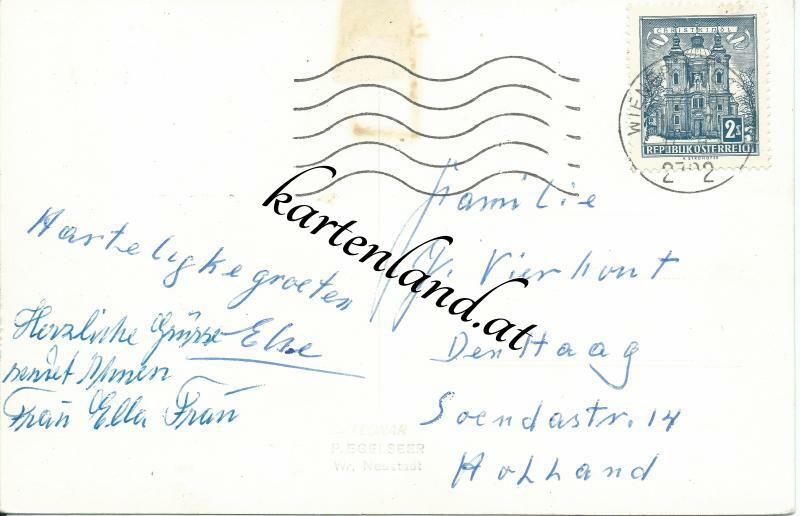 CHRISTKINDL
2 S
REPUBLIK ÖSTERREICH
WIEN
kartenland.at
Familie
J. Vierhout
Den Haag
Soendastr. 14
Holland
Hartelijke groeten
Else
Herzliche Grüsse
sendet Ihnen
Frau Ella Frau
P. EGELSEER
Wr. Neustadt